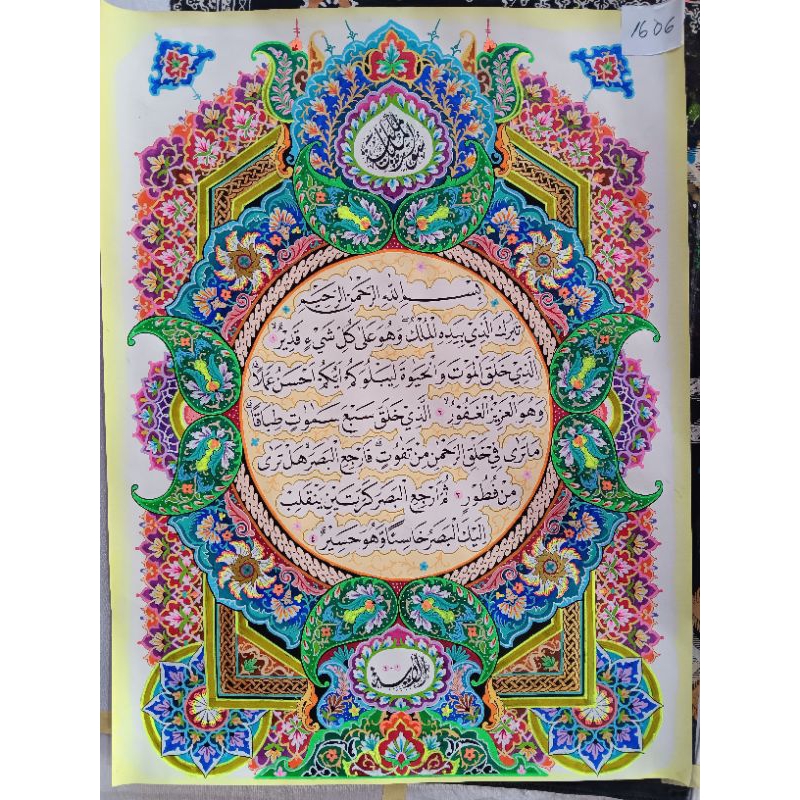 1606
سورة الملك
بِسْمِ اللهِ الرَّحْمٰنِ الرَّحِيْمِ
تَبٰرَكَ الَّذِيْ بِيَدِهِ الْمُلْكُ وَهُوَ عَلٰى كُلِّ شَيْءٍ قَدِيْرٌ ١
الَّذِيْ خَلَقَ الْمَوْتَ وَالْحَيٰوةَ لِيَبْلُوَكُمْ اَيُّكُمْ اَحْسَنُ عَمَلًا
وَهُوَ الْعَزِيْزُ الْغَفُوْرُ ٢ الَّذِيْ خَلَقَ سَبْعَ سَمٰوٰتٍ طِبَاقًا
مَا تَرٰى فِيْ خَلْقِ الرَّحْمٰنِ مِنْ تَفٰوُتٍ فَارْجِعِ الْبَصَرَ هَلْ تَرٰى
مِنْ فُطُوْرٍ ٣ ثُمَّ ارْجِعِ الْبَصَرَ كَرَّتَيْنِ يَنْقَلِبْ
اِلَيْكَ الْبَصَرُ خَاسِئًا وَّهُوَ حَسِيْرٌ ٤